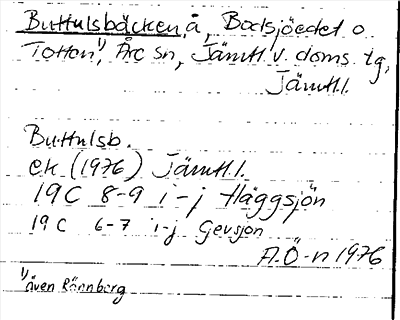 Buttulsbäcken, å, Bodsjöedet o.
Totten¹⁾, Åre sn, Jämtl. v. doms. tg,
Jämtl. l.
Buttulsb.
ek (1976) Jämtl. l.
19C 8-9 i-j Häggsjön
19C 6-7 i-j Gevsjön
A.Ö-n 1976
¹⁾ även Rännberg